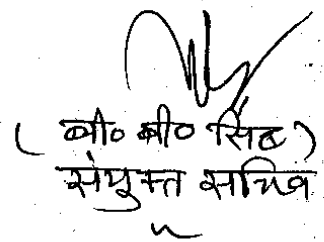 ( बी० बी० सिंह )
संयुक्त सचिव